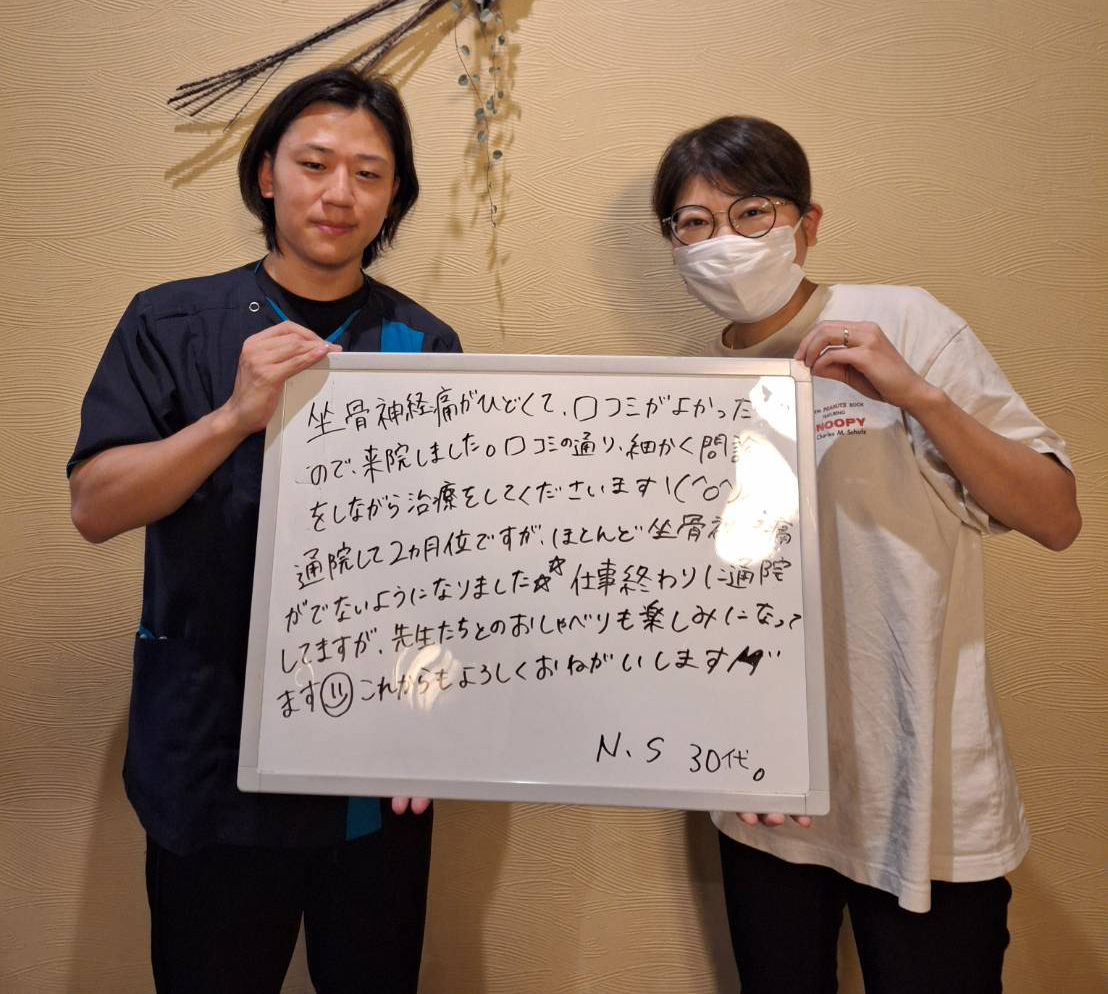 坐骨神経痛がひどくて、口コミがよかった
ので、来院しました。口コミの通り、細かく問診
をしながら治療をしてくださいます!(^o^)
通院して2ヵ月位ですが、ほとんど坐骨神経痛
がでないようになりました☆☆仕事終わりに通院
してますが、先生たちとのおしゃべりも楽しみになって
ます これからもよろしくおねがいします
N.S 30代。
PEANUTS ROCK
FEATURING
SNOOPY
Charles M. Schulz